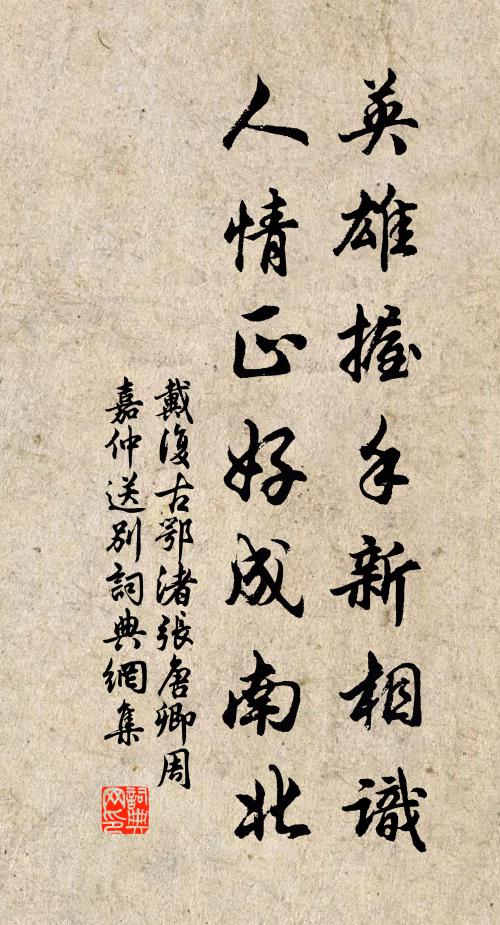 英雄握手新相識
人情正好成南北
戴復古鄂渚張唐卿周
嘉仲送别詞典網集
詞典
网印